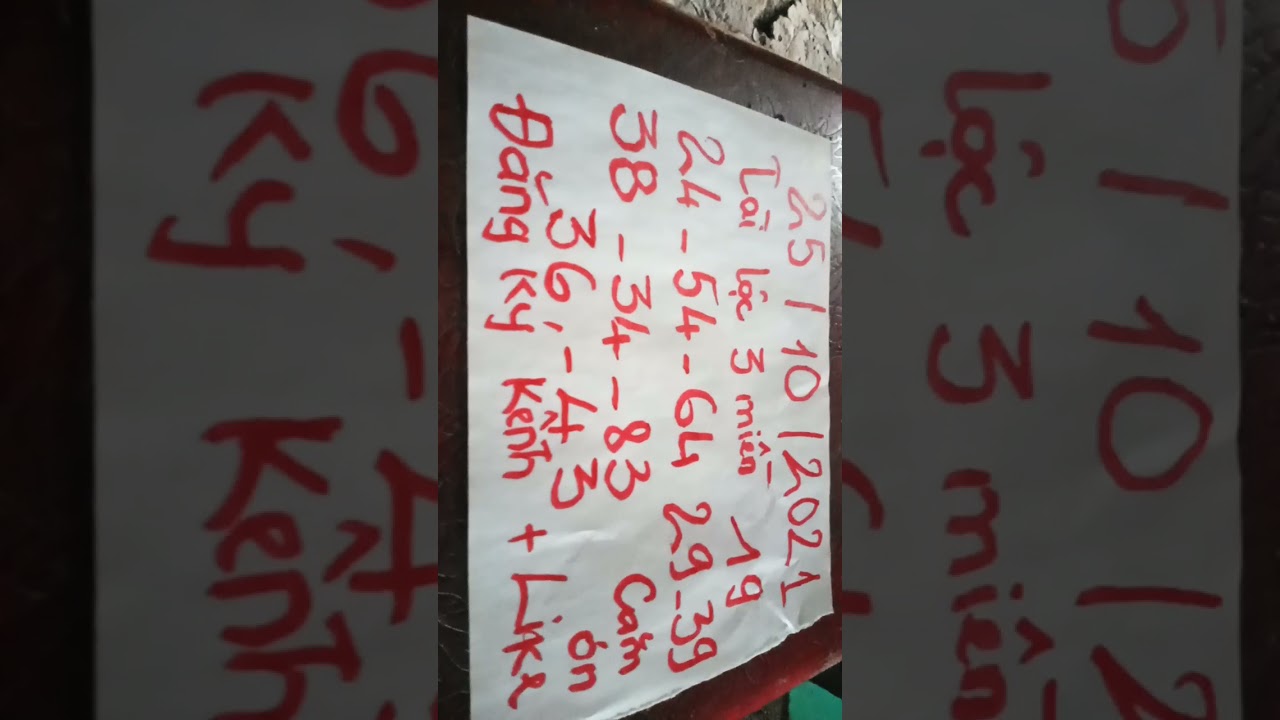 25/10/2021
Tài lộc 3 miền 19
24-54-64 29-39
38-34-83 Cảm
36-43 ơn
Đăng ký kênh + Like